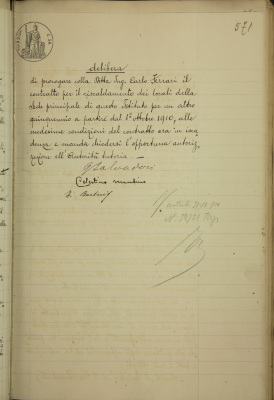 571
delibera
di prorogare alla Ditta Ing. Carlo Ferrari il
contratto pel riscaldamento dei locali della
sede principale di questo Istituto per un altro
quinquennio a partire dal 1° ottobre 1910, alle
medesime condizioni del contratto ora in vi
denza e manda chiedersi l'opportuna autoriz
zazione all'Autorità tutoria. —
G Salvadori
Celestino